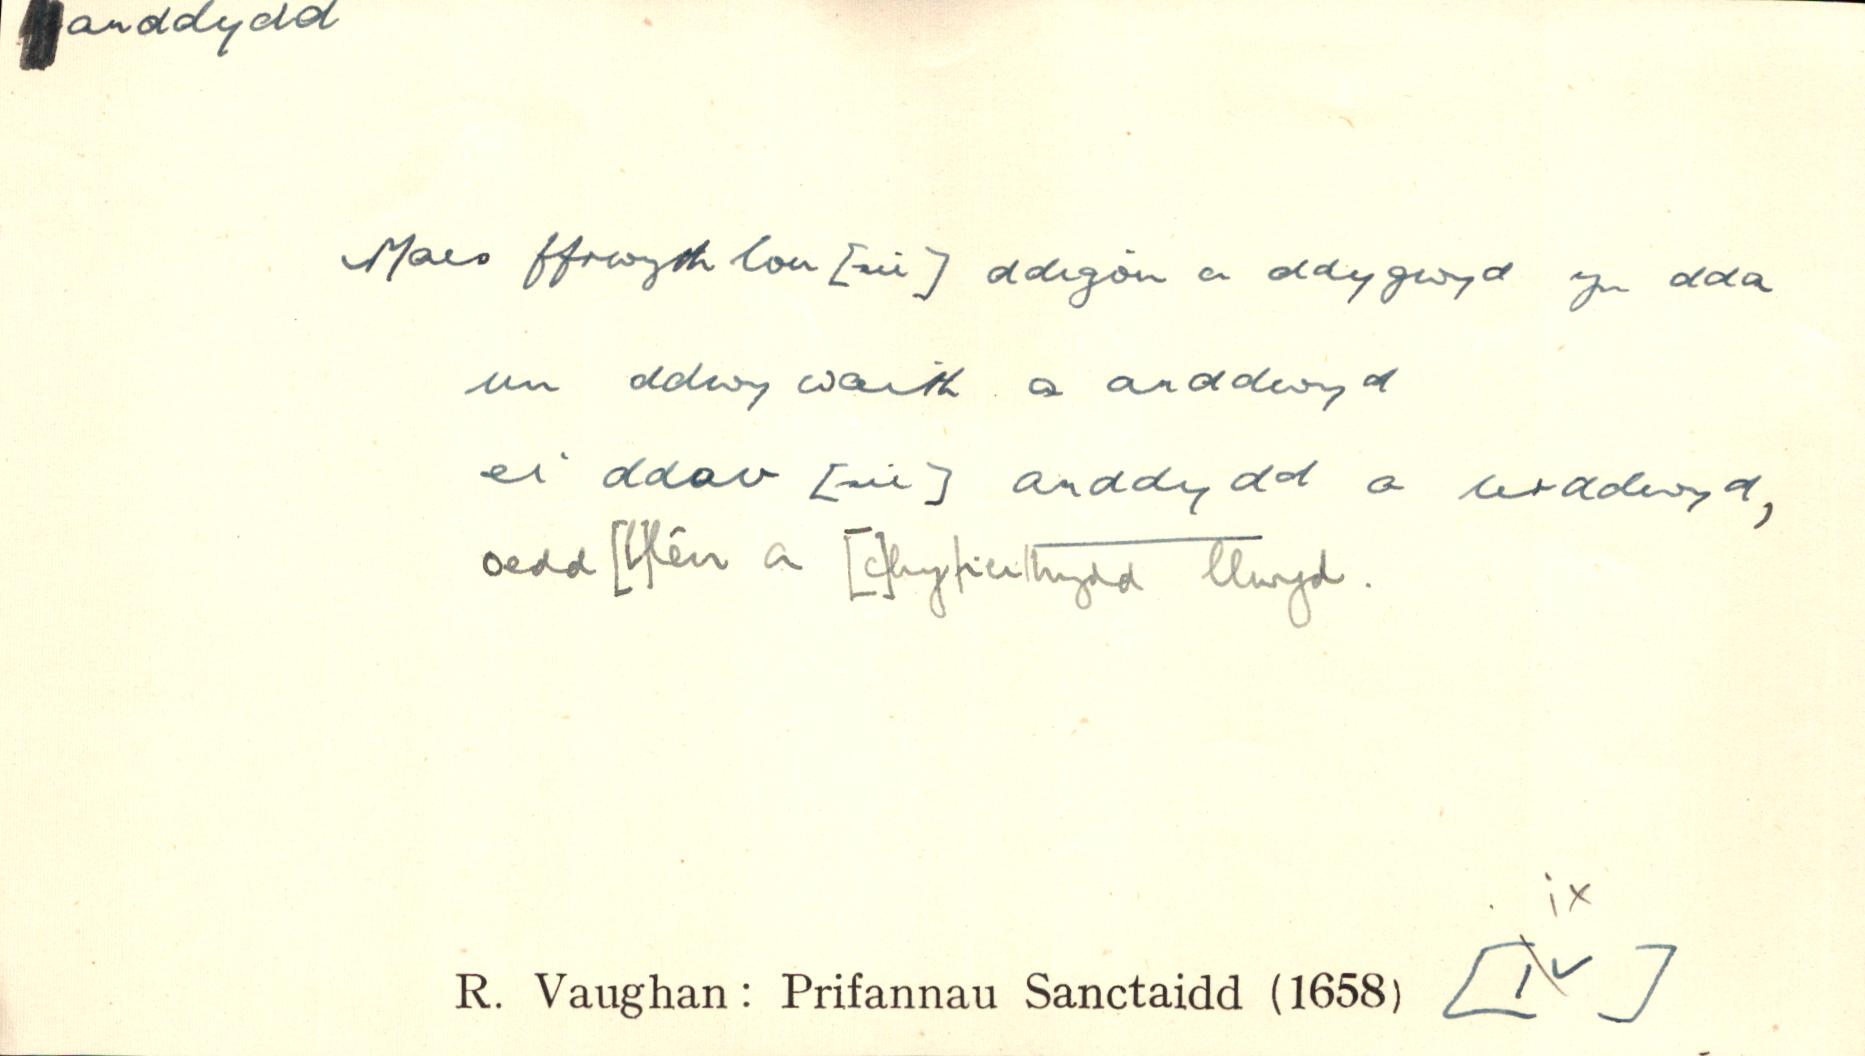 anddydd
Maes ffrwythlon [sic] ddigon a ddygwyd yn dda
un ddwywaith a arddwyd
ei ddav [sic] anddydd a urddwyd,
oedd [ll]ên a [c]hy llwyd.
ix
R. Vaughan: Prifannau Sanctaidd (1658) [iv]